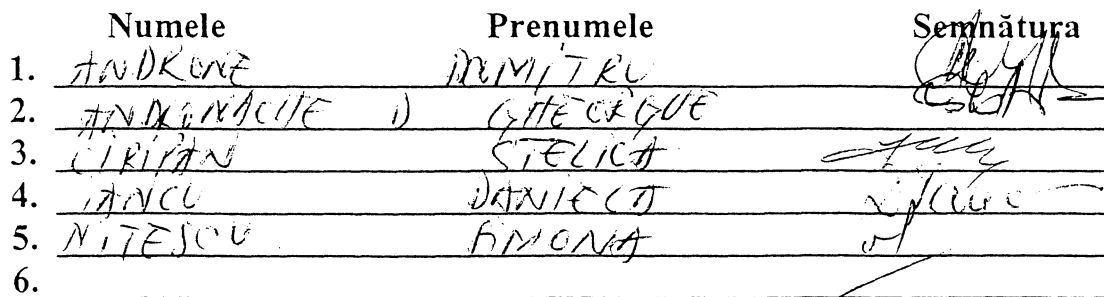 Numele Prenumele Semnătura
1. ANDRONE DUMITRU
2. ANDRONACHE D GHEORGHE
3. CIRIPAN STELICA
4. IANCU DANIELA
5. NITESCU
6.